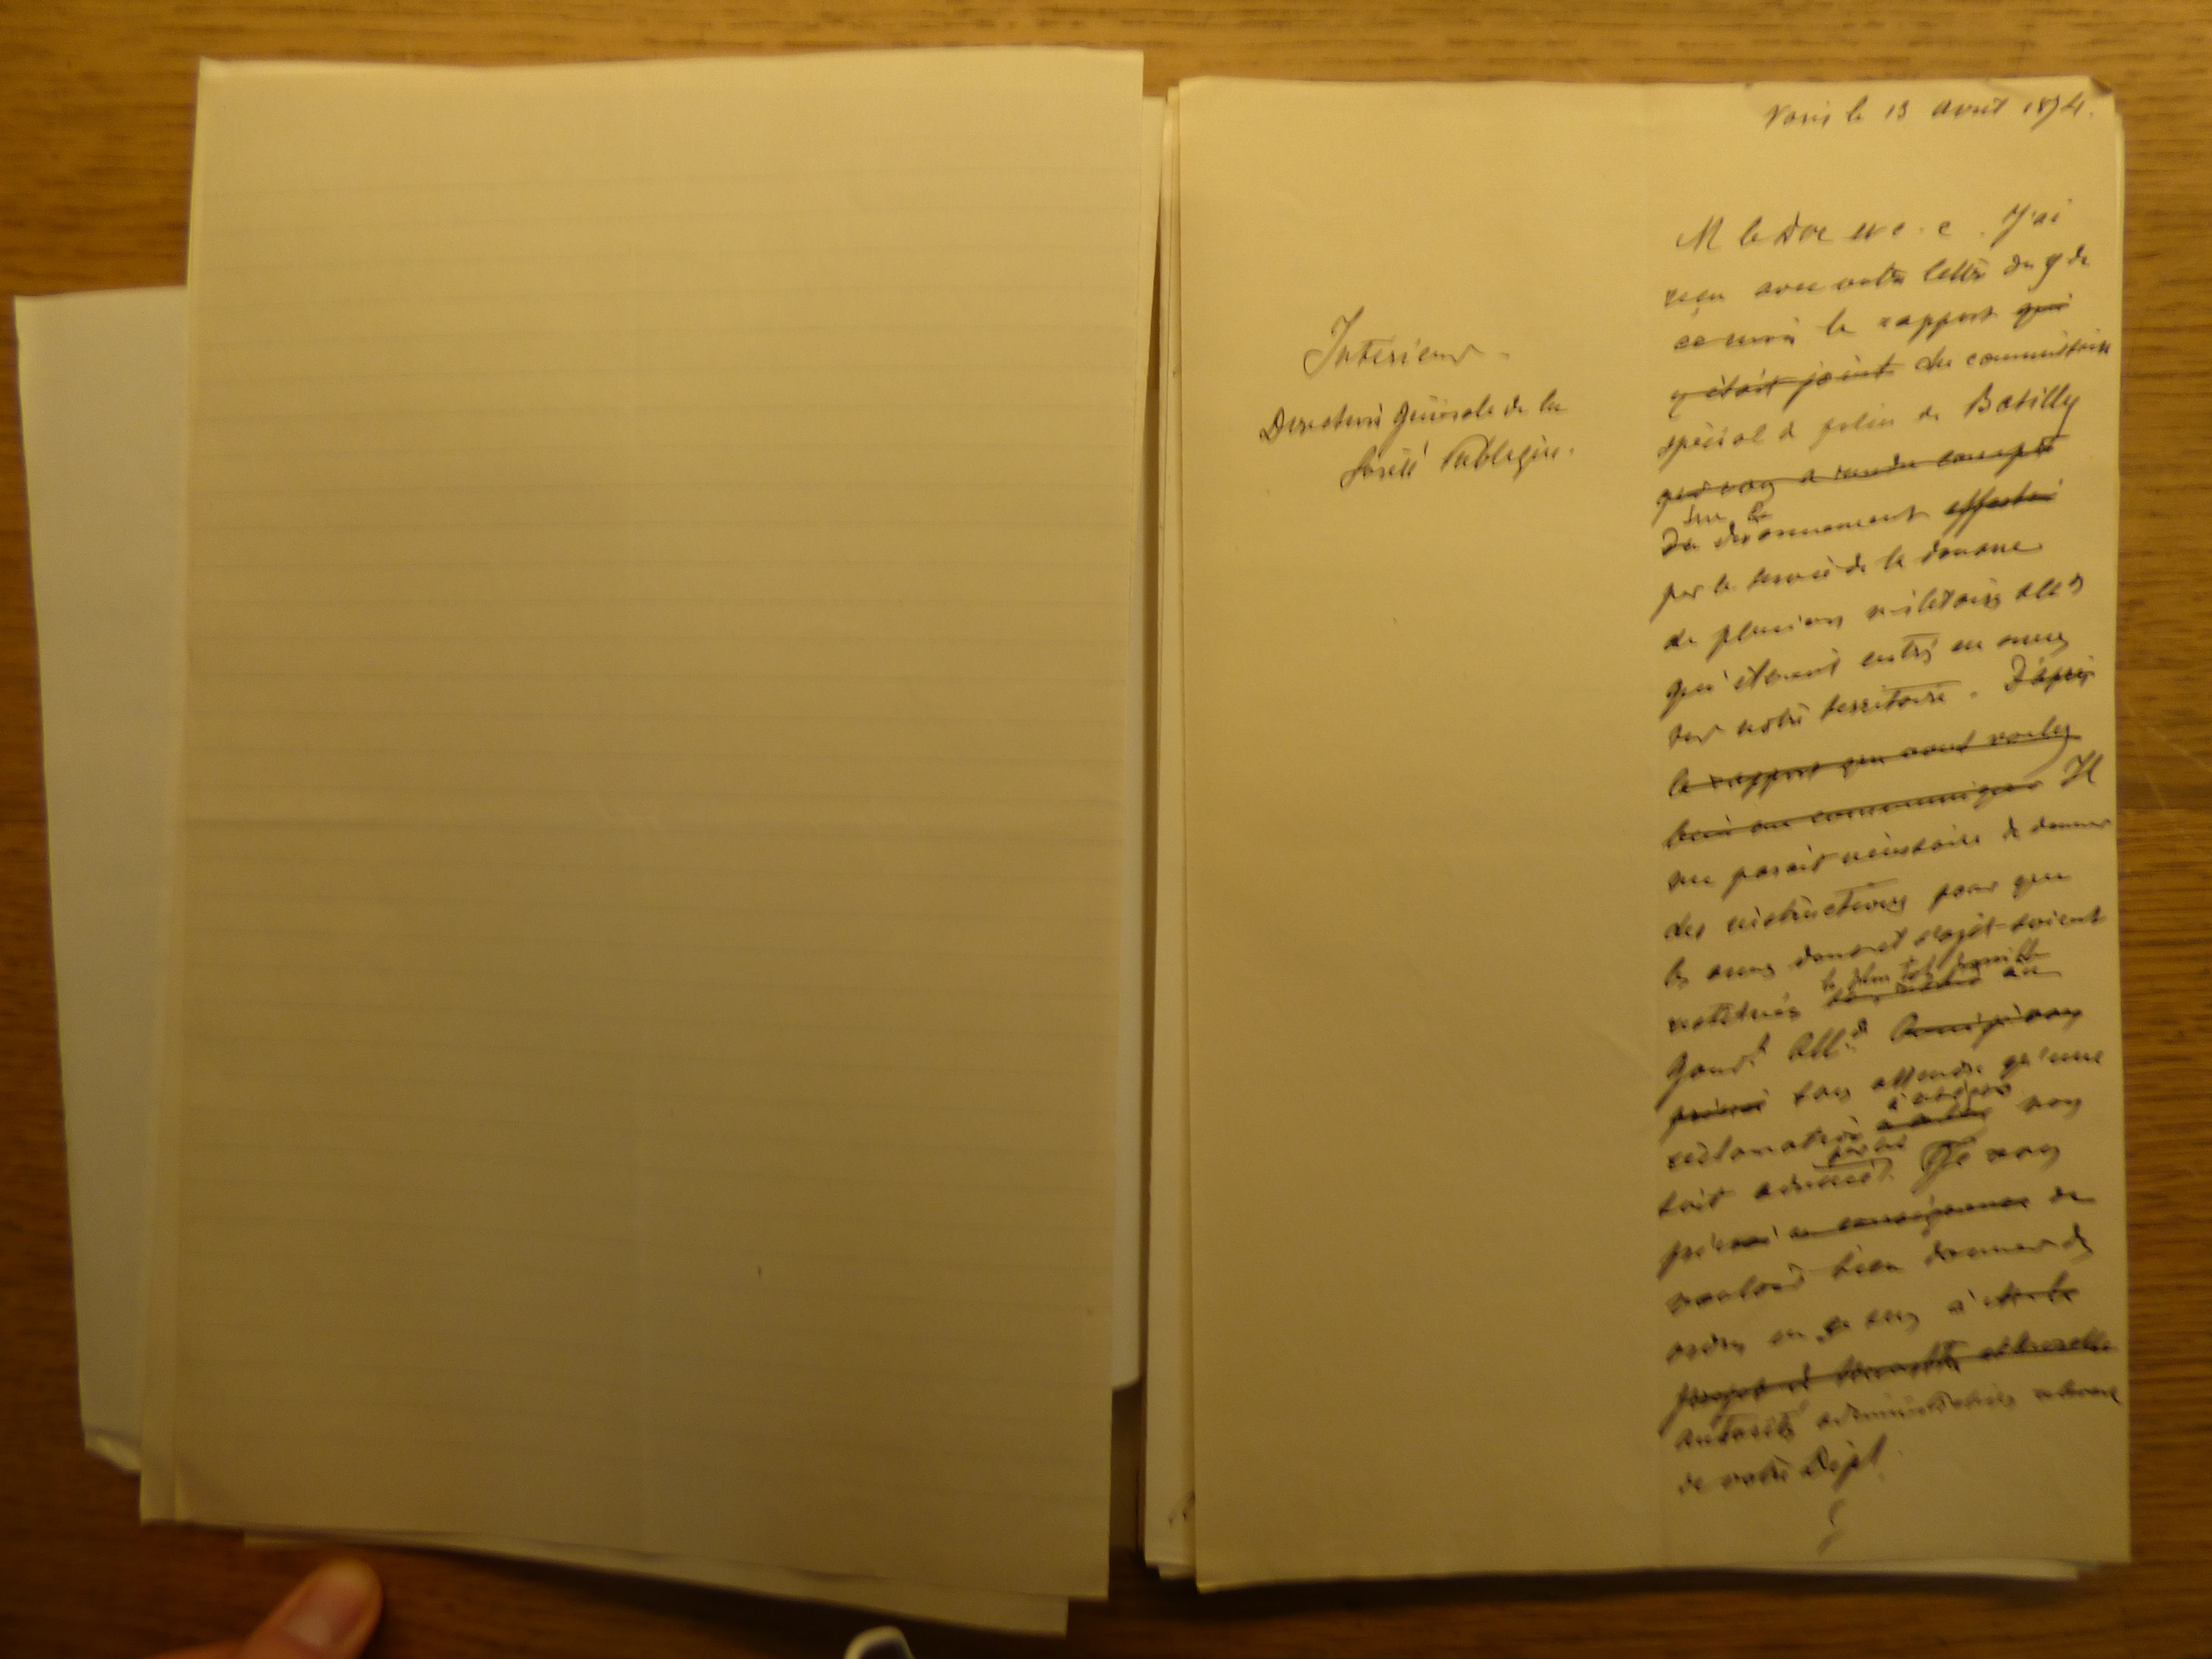 le 13 avril 1874.
Intérieur.
Direction Générale de la
Sureté Publique.
M le Duc et c. c. J'ai
reçu avec votre lettre du 9 de
ce mois le rapport qui
y était joint du commissaire
spécial de police de Batilly
qui a rendu compte
sur le
Du désarmement effectué
par le service de la douane
de plusieurs militaires all ds
qui étaient entrés en armes
sur notre territoire. D'après
le rapport que vous voulez
bien me communiquer Il
me parait nécessaire de donner
des instructions pour que
les armes dont il s'agit soient
le plus tôt possible
restituées au
Gouvt Alld
sans attendre qu'une
à ce sujet
réclamation nous
soit
Je vous
prie en conséquence de
vouloir bien donner des
ordres en ce sens à
autorités administratives
de votre Dépt.